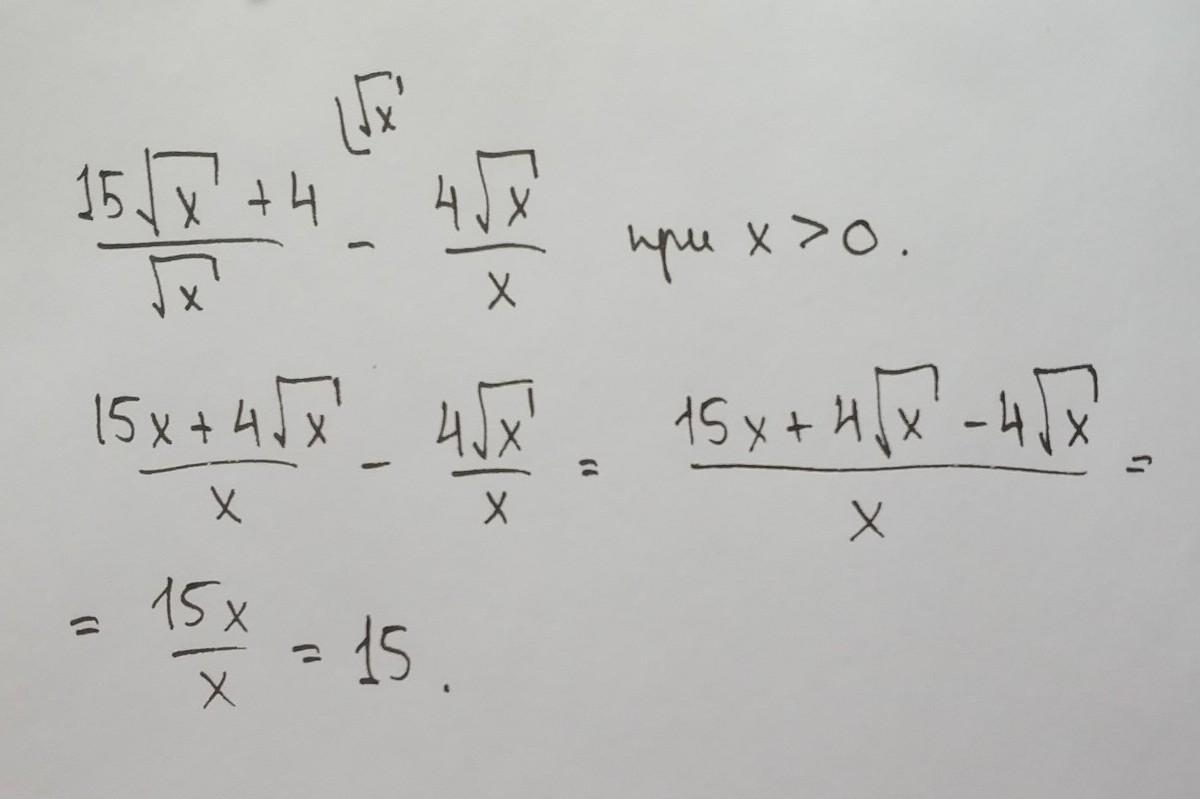 √x
(15√x + 4)/√x - 4√x/x при x > 0.
(15x + 4√x)/x - 4√x/x = (15x + 4√x - 4√x)/x =
= 15x/x = 15.